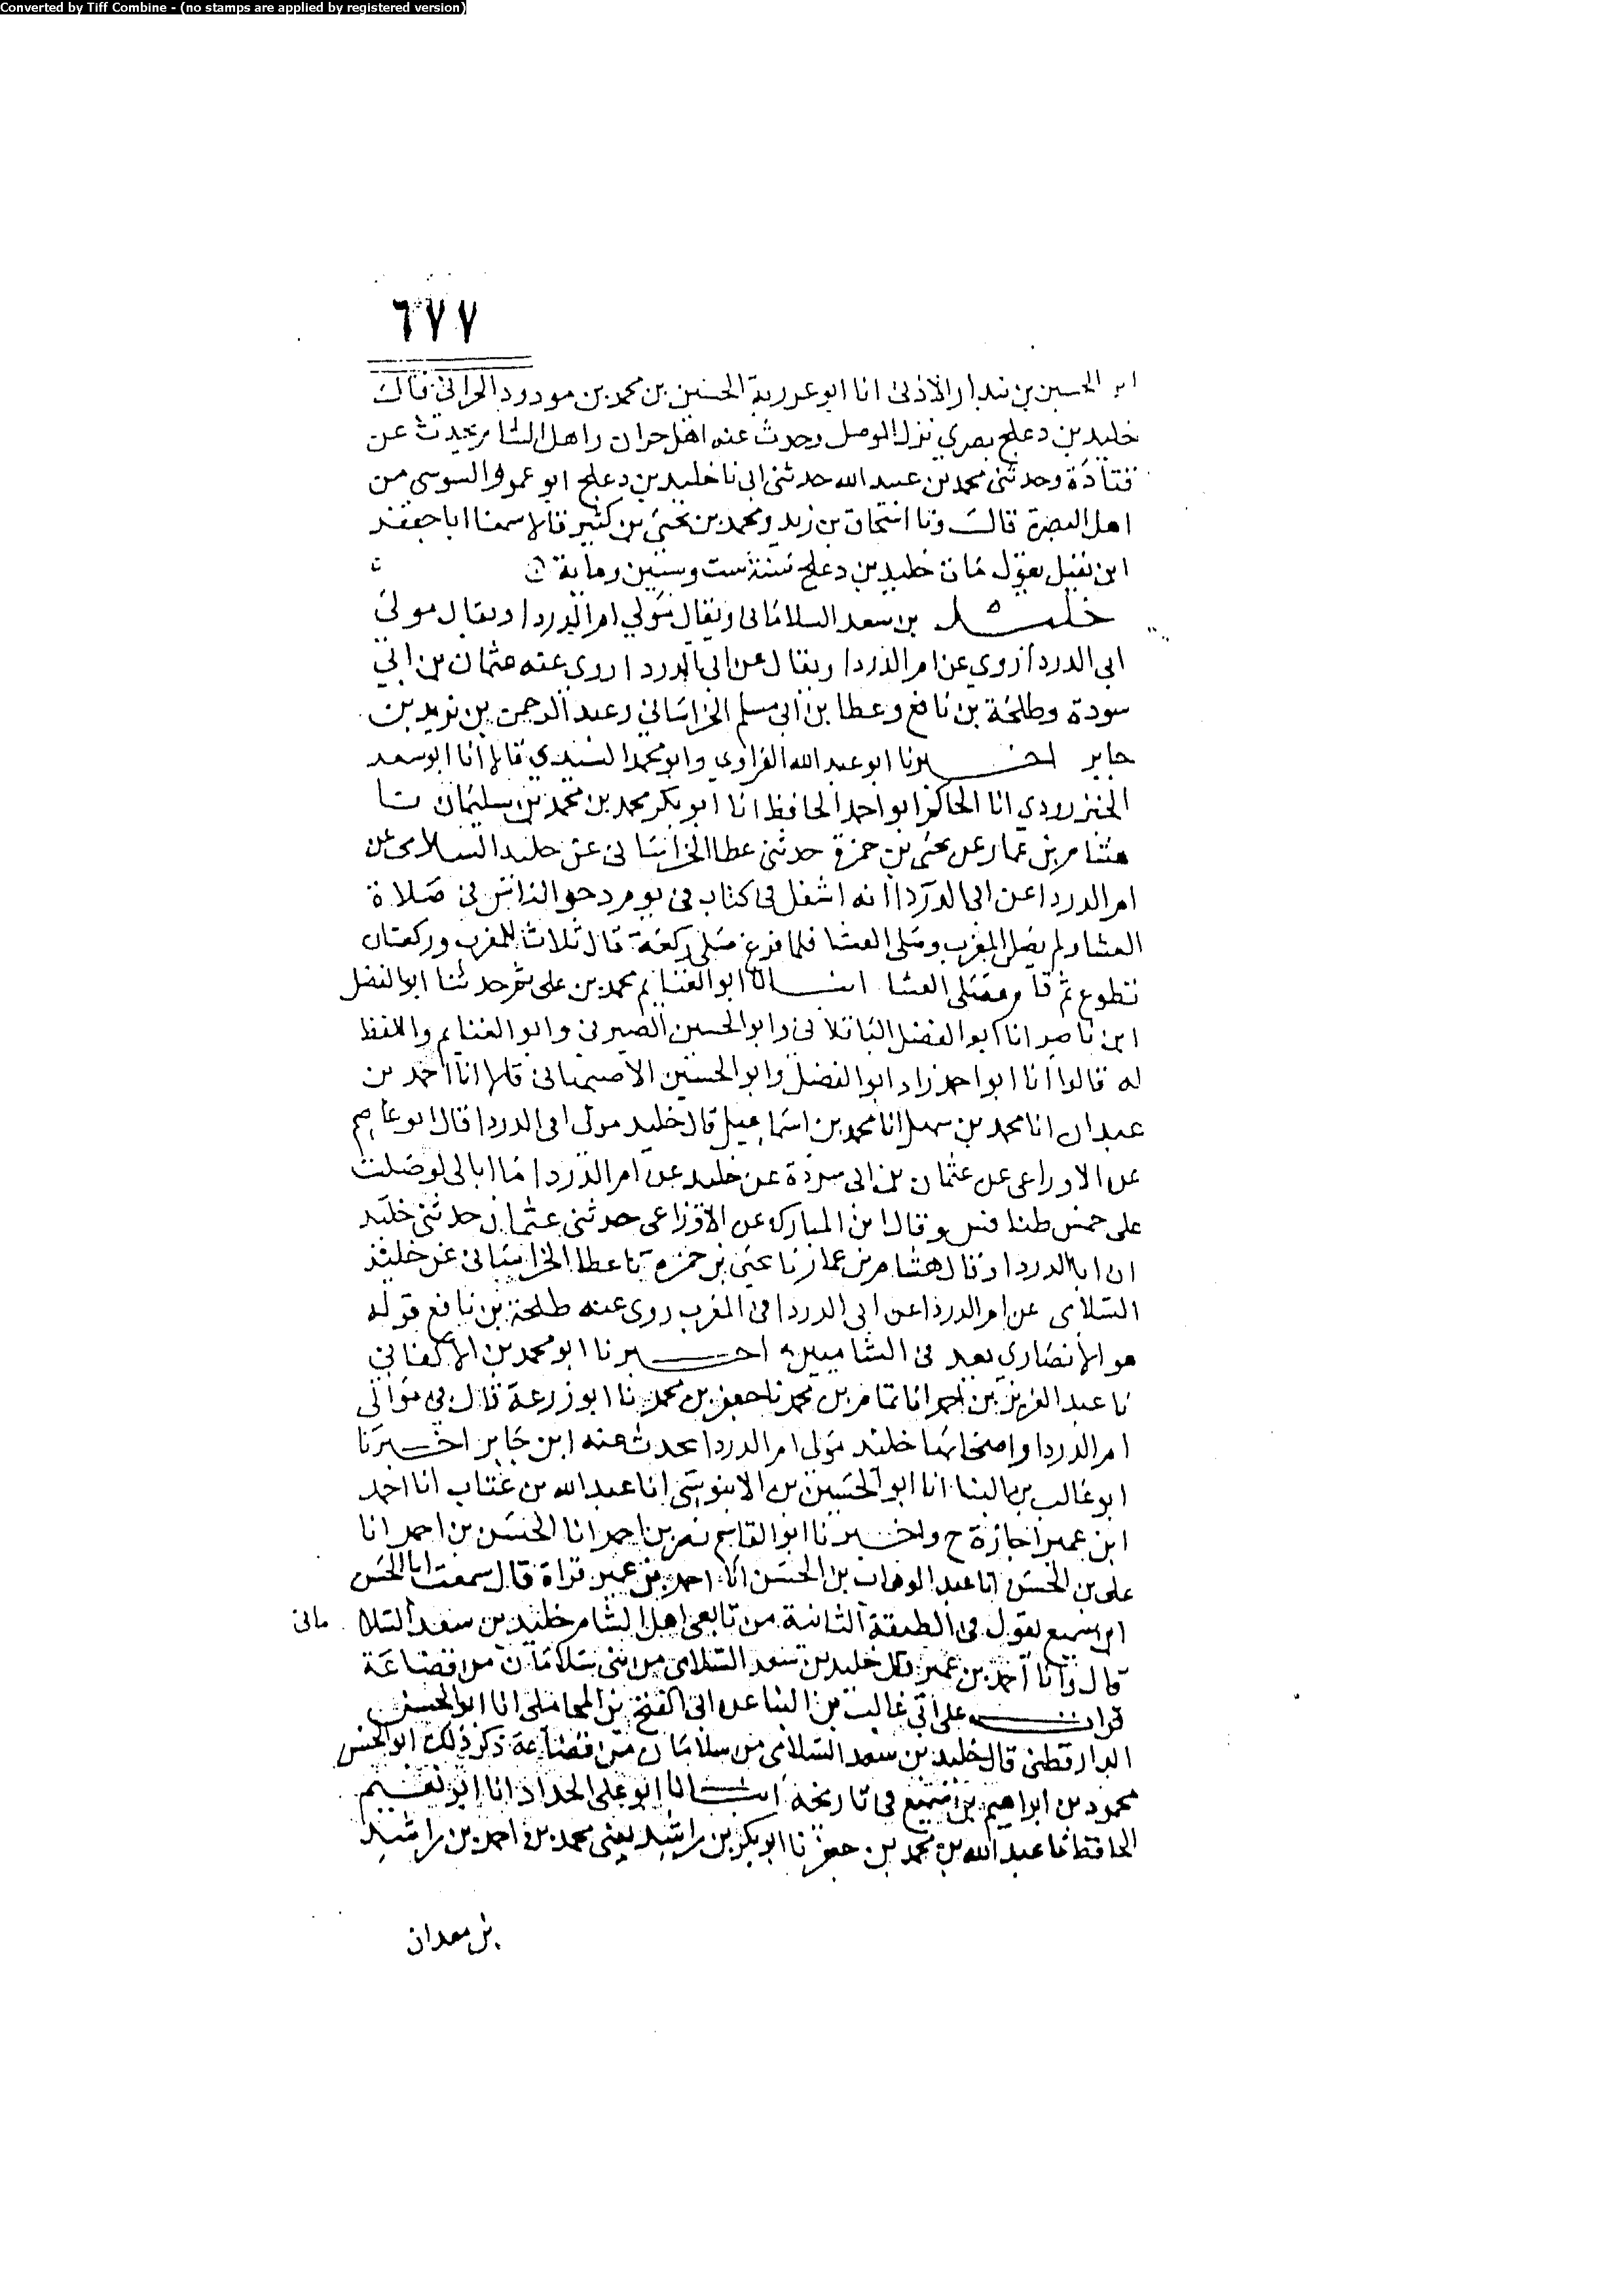 Converted by Tiff Combine - (no stamps are applied by registered version)
٦٧٧
ابو الحسين بن بندار الاذنى انا ابو عروبة الحسين بن محمد بن مودود الحراني قال
خليد بن دعلج بصري نزل الموصل وحدث عنه اهل حران واهل الشام يحدث عن
قتادة وحدثنى محمد بن عبيد الله حدثنى ابى نا خليد بن دعلج ابو عمرو السوسى من
اهل البصرة قال ونا اسحاق بن زيد ومحمد بن يحيى بن كثير قالا سمعنا ابا جعفر
ابن نفيل يقول مات خليد بن دعلج سنة ست وستين وماية
خليد بن سعد السلامانى ويقال مولي ام الدرداا ويقال مولى
ابي الدرداا روي عن ام الدرداا ويقال عن ابي الدرداا روى عنه عثمان بن ابي
سودة وطلحة بن نافع وعطا بن ابى مسلم الخراساني وعبد الرحمن بن يزيد بن
جابر اخبرنا ابو عبد الله الفراوي وابو محمد السيدي قالا انا ابو سعد
الجنزرودي انا الحاكم ابو احمد الحافظ انا ابو بكر محمد بن محمد بن سليمان نا
هشام بن عمار عن يحيى بن حمزة حدثنى عطا الخراسانى عن خليد السلامى عن
ام الدرداا عن ابى الدرداا انه اشغل فى كتاب فى يوم دحو الناس فى صلاة
العشا ولم يصل المغرب وصلى العشا فلما فرغ صلى ركعة قال ثلاث للمغرب وركعتان
تطوع ثم قام فصلى العشا انبانا ابو الغنايم محمد بن على ثم حدثنا ابو الفضل
ابن ناصر انا ابو الفضل الباقلانى وابو الحسين الصيرفى وابو الغنايم واللفظ
له قالوا انا ابو احمد زاد ابو الفضل وابو الحسين الاصبهانى قالا انا احمد بن
عبدان انا محمد بن سهل انا محمد بن اسماعيل قال خليد مولى ابى الدرداا قال ابو عاصم
عن الاوزاعى عن عثمان بن ابى سودة عن خليد عن ام الدرداا ما ابالى لو صليت
على خمس طنافس وقال ابن المبارك عن الاوزاعى حدثنى عثمان حدثنى خليد
ان ابا الدرداا وقال هشام بن عمار نا يحيى بن حمزه نا عطا الخراسانى عن خليد
السلامى عن ام الدرداا عن ابى الدرداا فى المغرب روى عنه طلحة بن نافع قوله
هو الانصاري يعد فى الشاميين اخبرنا ابو محمد بن الاكفاني
نا عبد العزيز بن احمد انا تمام بن محمد نا جعفر بن محمد نا ابو زرعة قال فى موالى
ام الدرداا واصحابها خليد مولى ام الدرداا يحدث عنه ابن جابر اخبرنا
ابو غالب بن البنا انا ابو الحسين بن الابنوسى انا عبد الله بن عتاب انا احمد
ابن عمير اجازة ح واخبرنا ابو القاسم نصر بن احمد انا الحسن بن احمد انا
على بن الحسن انا عبد الوهاب بن الحسن انا احمد بن عمير قراة قال سمعت ابا الحسن
ابن سميع يقول فى الطبقة الثانية من تابعى اهل الشام خليد بن سعد السلا مانى
قال وانا احمد بن عمير قال خليد بن سعد السلامى من بنى سلامان من قضاعة
قرات على ابى غالب بن البنا عن ابى الفتح بن المحاملى انا ابو الحسن
الدارقطنى قال خليد بن سعد السلامى من سلامان من قضاعة ذكر ذلك ابو الحسن
محمود بن ابراهيم بن سميع فى تاريخه انبانا ابو على الحداد انا ابو نعيم
الحافظ نا عبد الله بن محمد بن جعفر نا ابو بكر بن راشد يعنى محمد بن احمد بن راشد
بن معدان